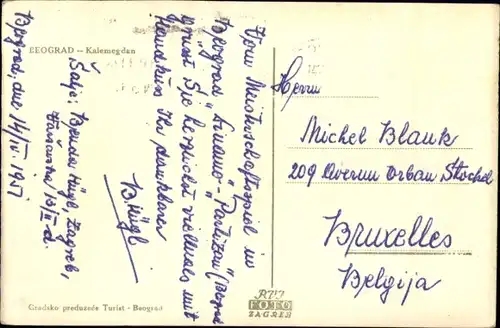 BEOGRAD – Kalemegdan
Beograd, due 14/IV. 1957
Šalje: Bruno Hügl, Zagreb,
13/II. d.
Vom Meisterschaftsspiel in
Beograd "Dinamo"-"Partizan" (Beograd
grüsst Sie herzlichst vielmals mit
Ihr dankbarer
B. Hügl
Herrn
Michel Blauk
209 Avenue Orban Stockel
Bruxelles
Belgija
Gradsko preduzeće Turist - Beograd
FOTO
ZAGREB